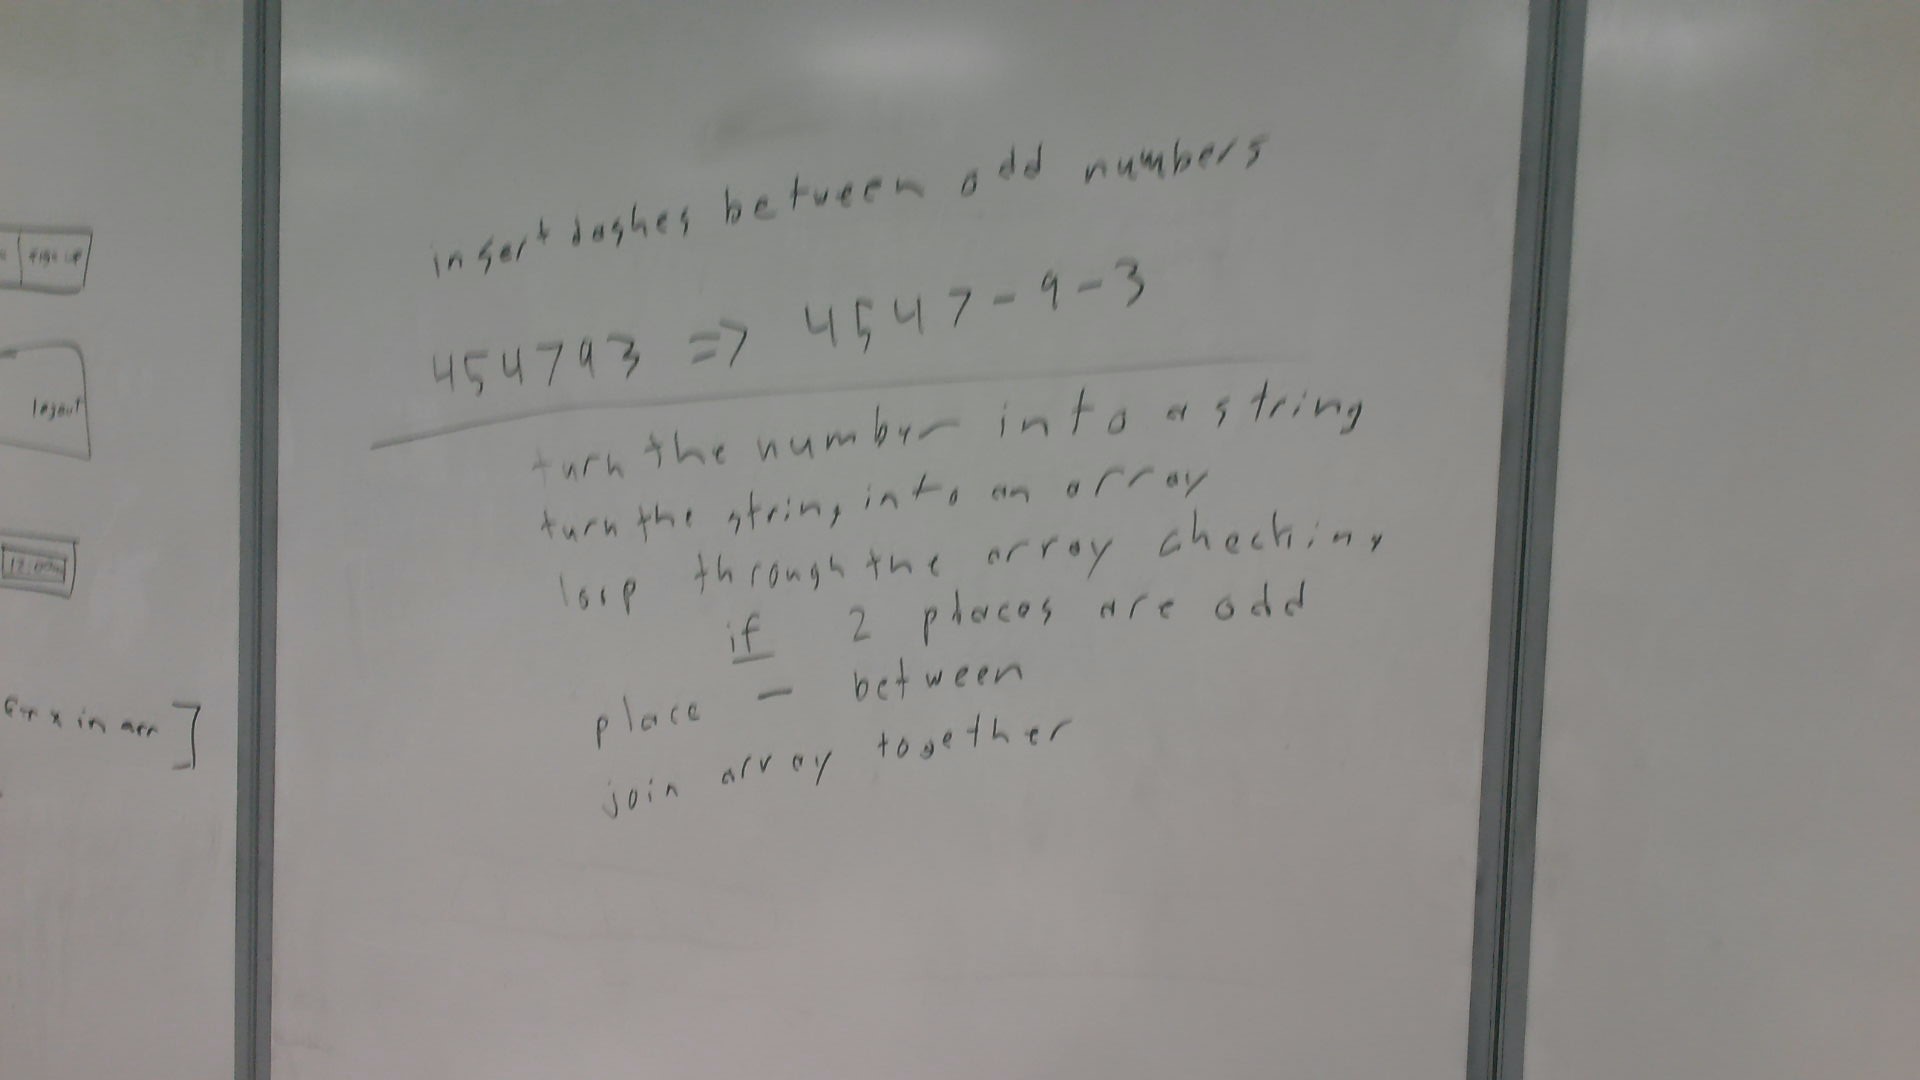 insert dashes between odd numbers
454793 => 4547-9-3
turn the number into a string
turn the string into an array
loop through the array checking
if 2 places are odd
place - between
join array together
sign up
logout
x in arr]